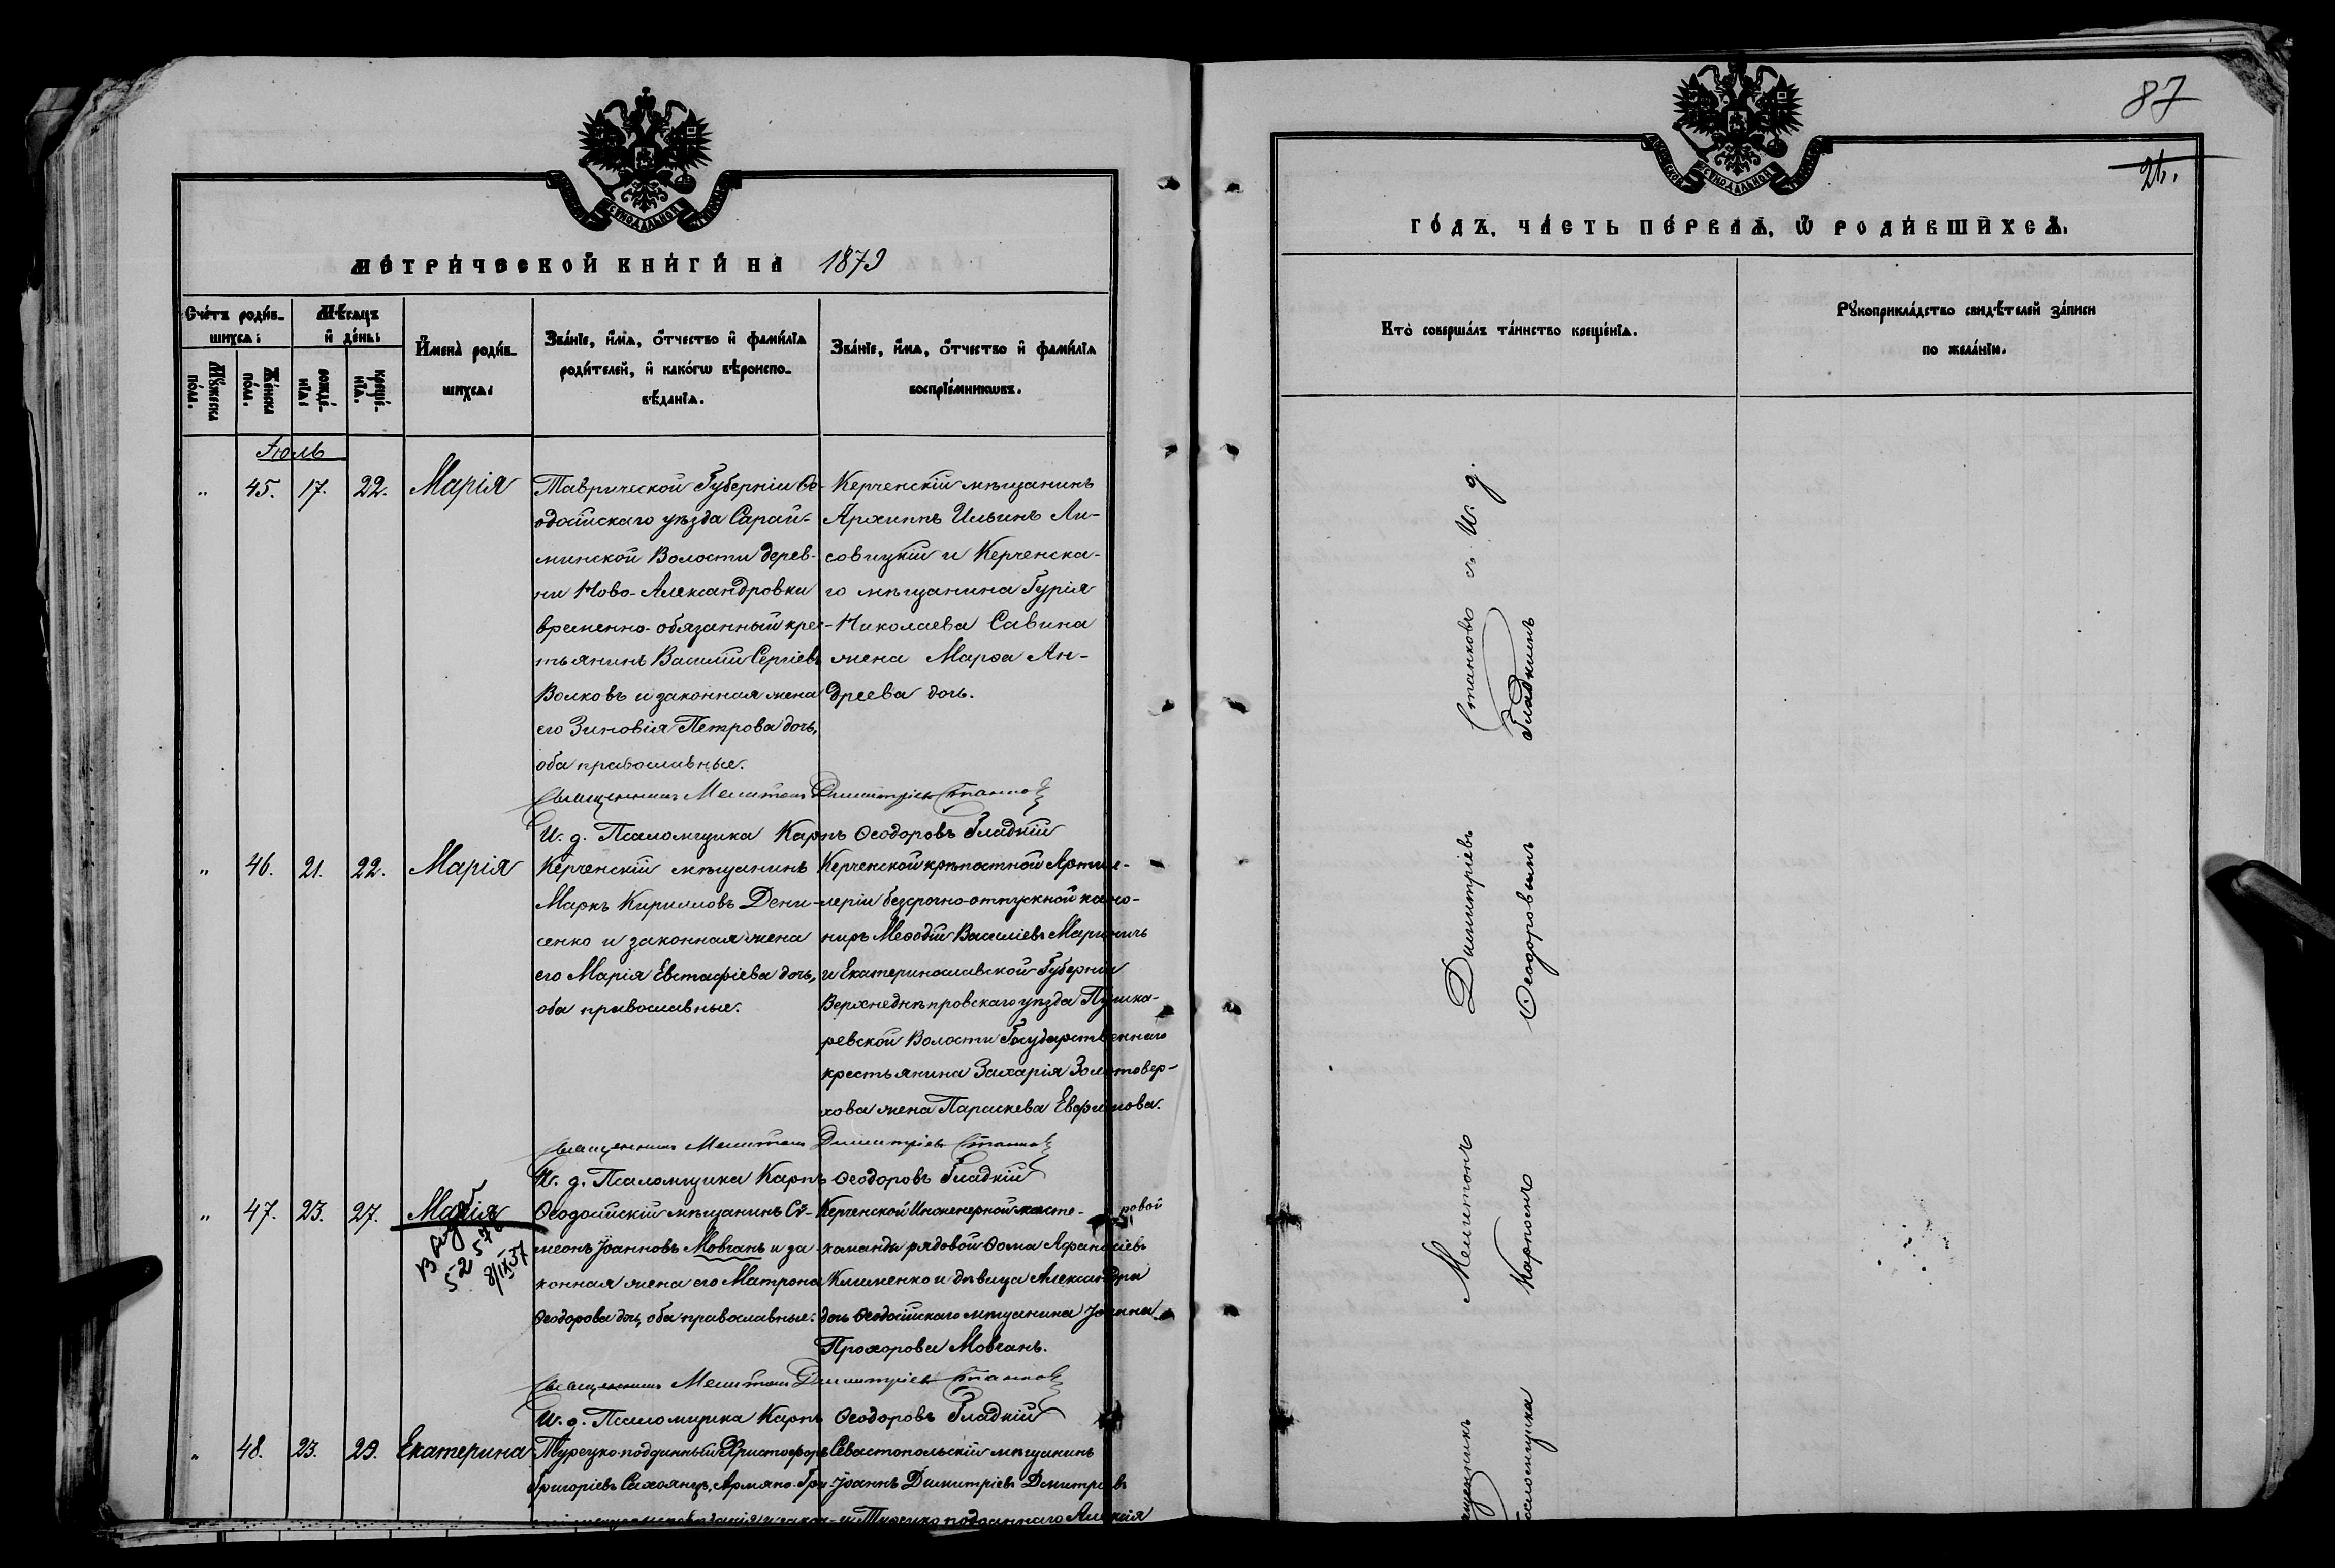 МЕТРИЧЕСКОЙ КНИГИ НА 1879
Счетъ родив-
шихся:
Мужеска
пола.
Женска
пола.
Мѣсяцъ
и день:
рожде-
нія:
креще-
нія.
Имена родив-
шихся:
Званіе, имя, отчество и фамилія
родителей, и какогω вѣроиспо-
вѣданія.
Званіе, имя, отчество и фамилія
воспріемникωвъ.
Іюль
" 45. 17. 22. Марія
Таврической Губерніи Ѳе-
одосійскаго уѣзда Сарай-
минской Волости дерев-
ни Ново-Александровки
временно-обязанный крес-
тьянинъ Василій Сергіевъ
Волковъ и законная жена
его Зиновія Петрова дочь,
оба православные.
Керченскій мѣщанинъ
Архиппъ Ильинъ Ли-
совицкій и Керченска-
го мѣщанина Гурія
Николаева Савина
жена Марѳа Ан-
дреева дочь.
Священникъ Мелитонъ Димитріевъ Станковъ
И. д. Псаломщика Карпъ Ѳеодоровъ Гладкій
" 46. 21. 22. Марія
Керченскій мѣщанинъ
Маркъ Кирилловъ Дени-
сенко и законная жена
его Марія Евстафіева дочь,
оба православные.
Керченской крѣпостной Артил-
леріи безсрочно-отпускной кано-
ниръ Меѳодій Василіевъ
и Екатеринославской Губерніи
Верхнеднѣпровскаго уѣзда Пушка-
ревской Волости Государственнаго
крестьянина Захарія Золотовер-
хова жена Параскева Ефимова.
Священникъ Мелитонъ Димитріевъ Станковъ
И. д. Псаломщика Карпъ Ѳеодоровъ Гладкій
" 47. 23. 27. Марія
8/IX 57
Ѳеодосійскій мѣщанинъ Сѵ-
меонъ Іоанновъ Мовчанъ и за-
конная жена его Матрона
Ѳеодорова дочь, оба православные.
Керченской Инженерной масте-
ровой
команды рядовой Ѳома Аѳанасіевъ
Клименко и дѣвица Александра
дочь Ѳеодосійскаго мѣщанина Іоанна
Прохорова Мовчанъ.
Священникъ Мелитонъ Димитріевъ Станковъ
И. д. Псаломщика Карпъ Ѳеодоровъ Гладкій
" 48. 23. 29. Екатерина
Турецко-подданный Христофоръ
Григоріевъ Армяно-Гри-
Севастопольскій мѣщанинъ
Іоаннъ Димитріевъ Дмитріевъ
и Турецко подданнаго Алексія
87
26.
ГОДЪ, ЧАСТЬ ПЕРВАЯ, Ѿ РОДИВШИХСЯ.
Кто совершалъ таинство крещенія.
Рукоприкладство свидѣтелей записи
по желанію.
Священникъ Мелитонъ Димитріевъ Станковъ съ И. д.
Псаломщика Карпомъ Ѳеодоровымъ Гладкимъ